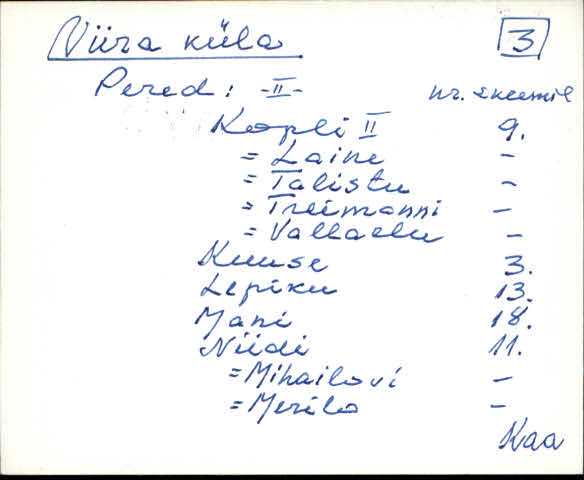 Viira küla 3
Pered: -II- nr. skeemil
Kopli II 9.
= Laine -
= Talistu -
= Treimanni -
= Vallaelu -
Kuuse 3.
Lepiku 13.
Mani 18.
Niidi 11.
= Mihailovi -
= Merilo -
Kaa